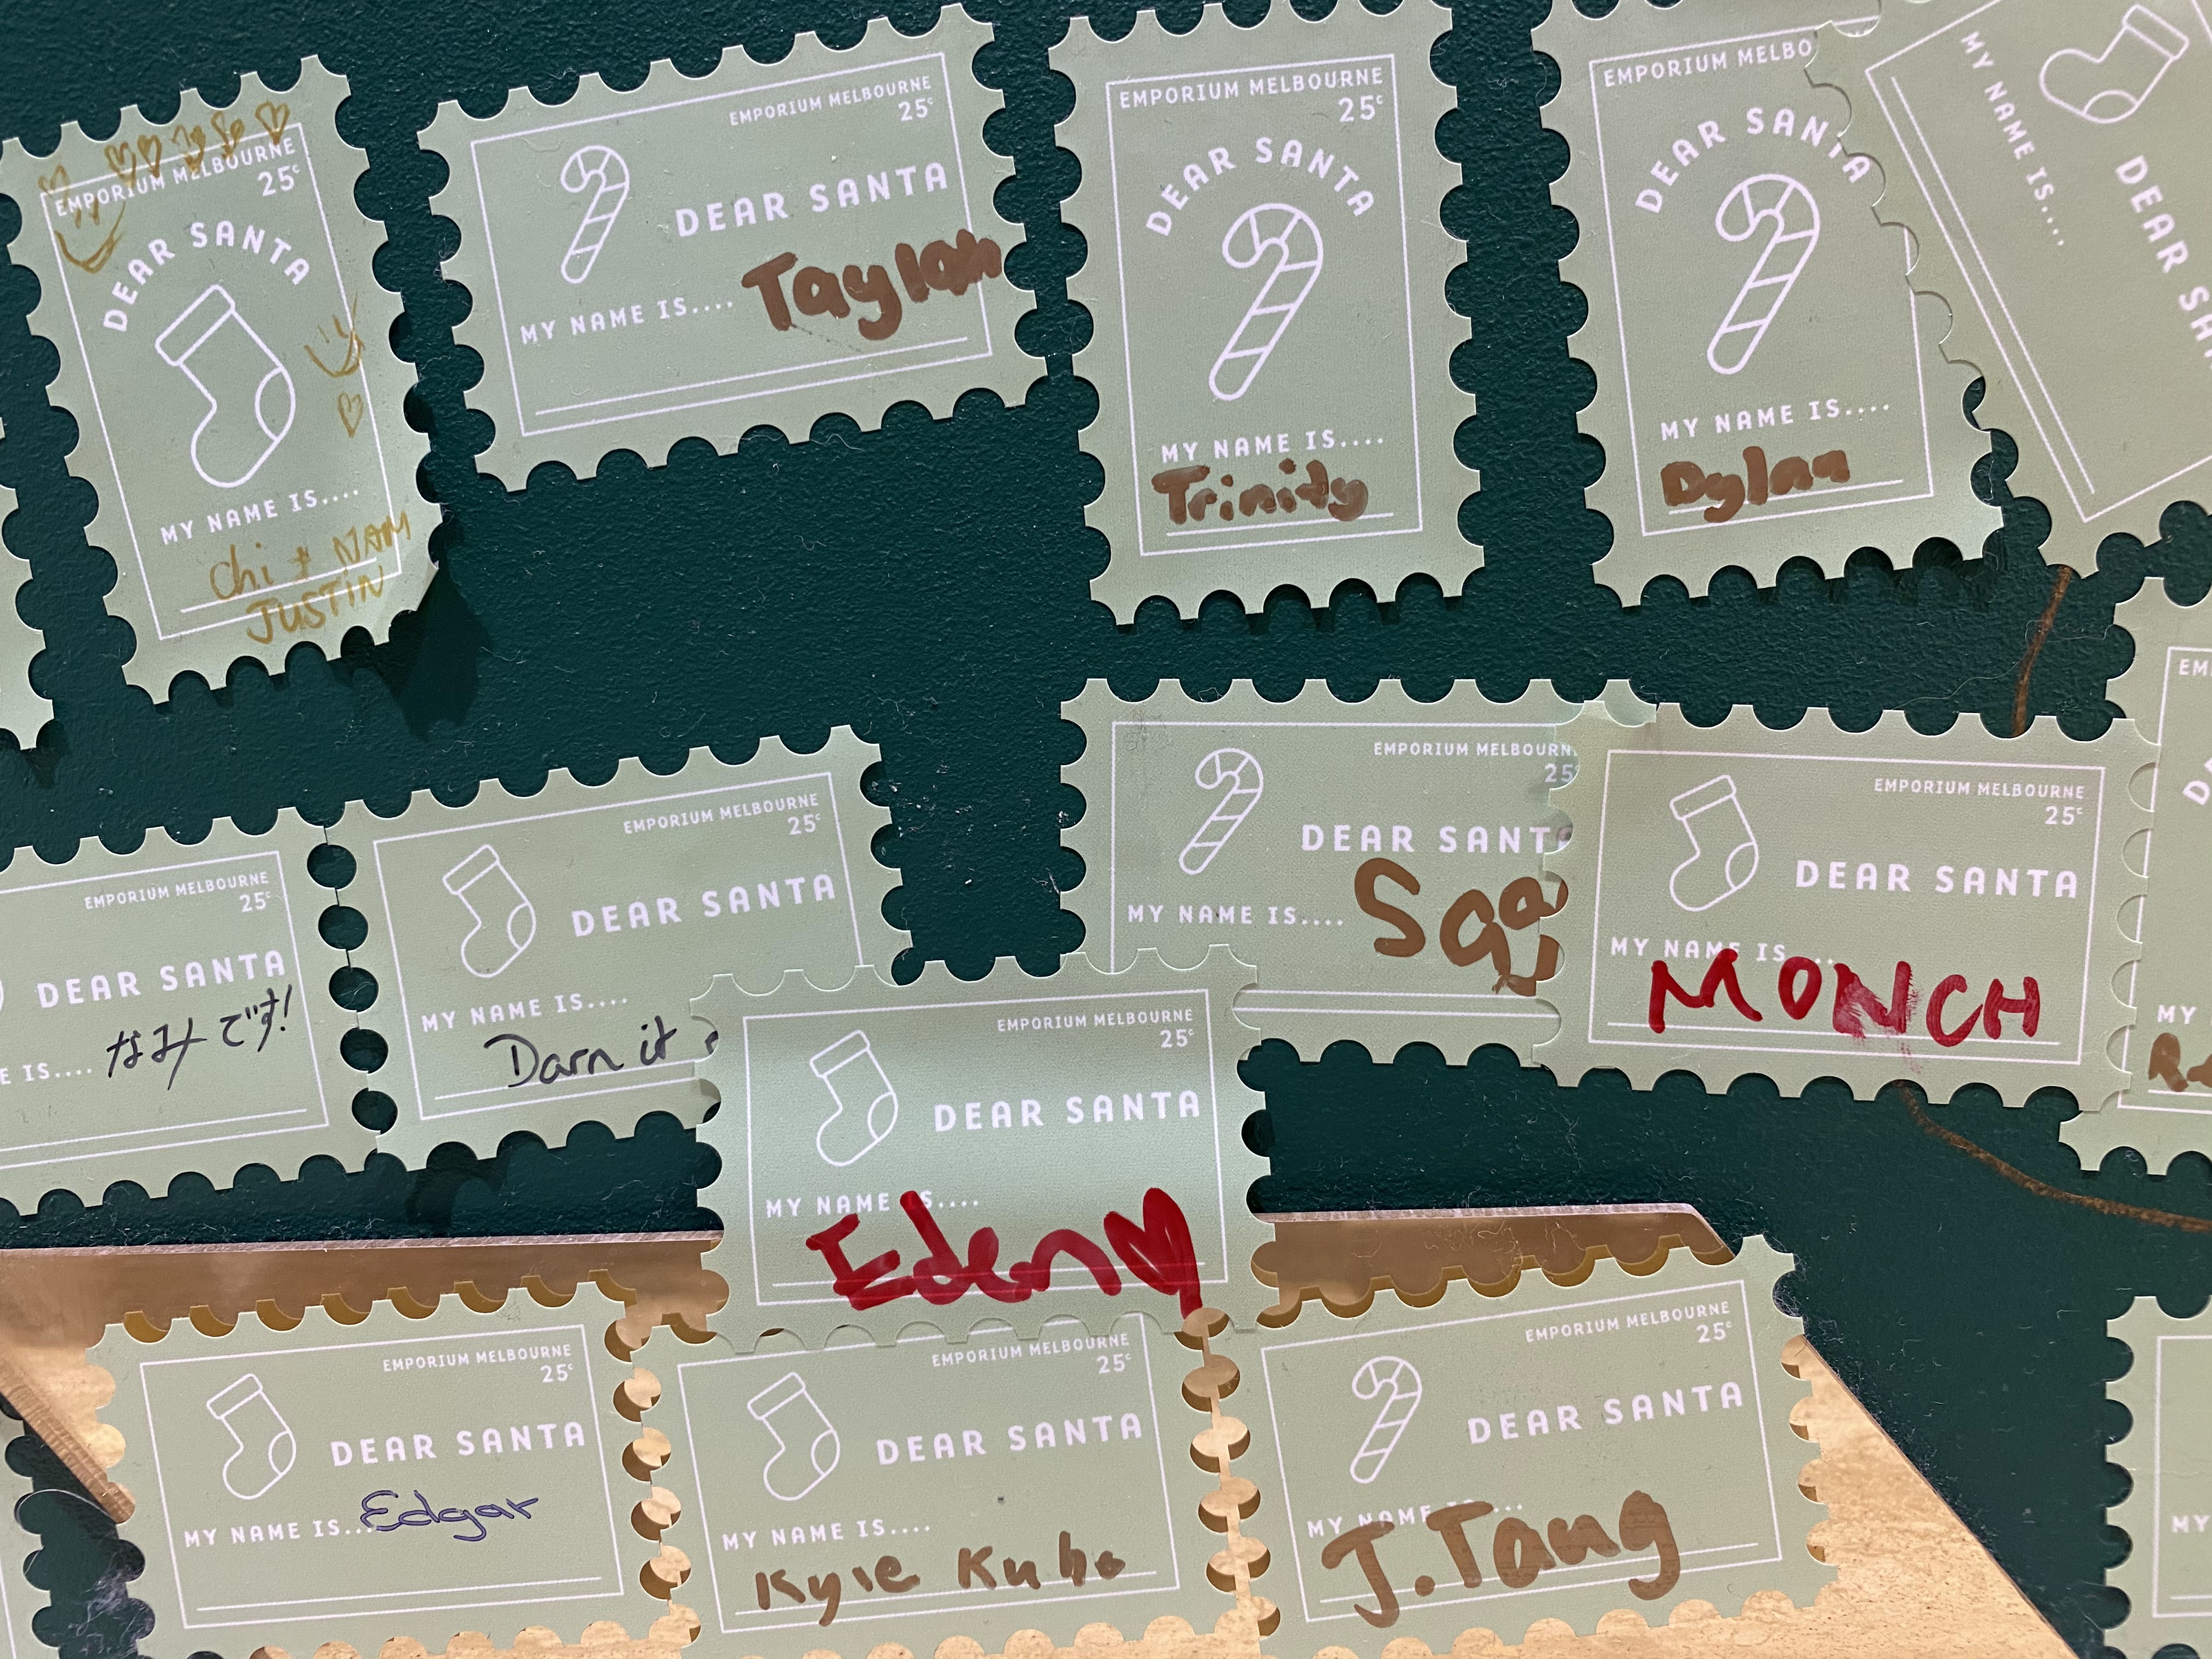 EMPORIUM MELBOURNE
25c
DEAR SANTA
MY NAME IS....
Chi + NAM
JUSTIN
EMPORIUM MELBOURNE
25c
DEAR SANTA
MY NAME IS....
EMPORIUM MELBOURNE
25c
DEAR SANTA
MY NAME IS....
Trinidy
EMPORIUM MELBO
DEAR SANTA
MY NAME IS....
Dylan
MY NAME IS....
DEAR
EMPORIUM MELBOURNE
25c
DEAR SANTA
E IS....
なみです!
EMPORIUM MELBOURNE
25c
DEAR SANTA
MY NAME IS....
Darn it
EMPORIUM MELBOURN
25
DEAR SANT
MY NAME IS....
EMPORIUM MELBOURNE
25c
DEAR SANTA
MY NAME IS....
MONCH
EM
MY
EMPORIUM MELBOURNE
25c
DEAR SANTA
MY NAME IS....
Eden
EMPORIUM MELBOURNE
25c
DEAR SANTA
MY NAME IS...
Edgar
EMPORIUM MELBOURNE
25c
DEAR SANTA
MY NAME IS....
Kyle Kubo
EMPORIUM MELBOURNE
25c
DEAR SANTA
MY NAME IS....
J.Tang
MY